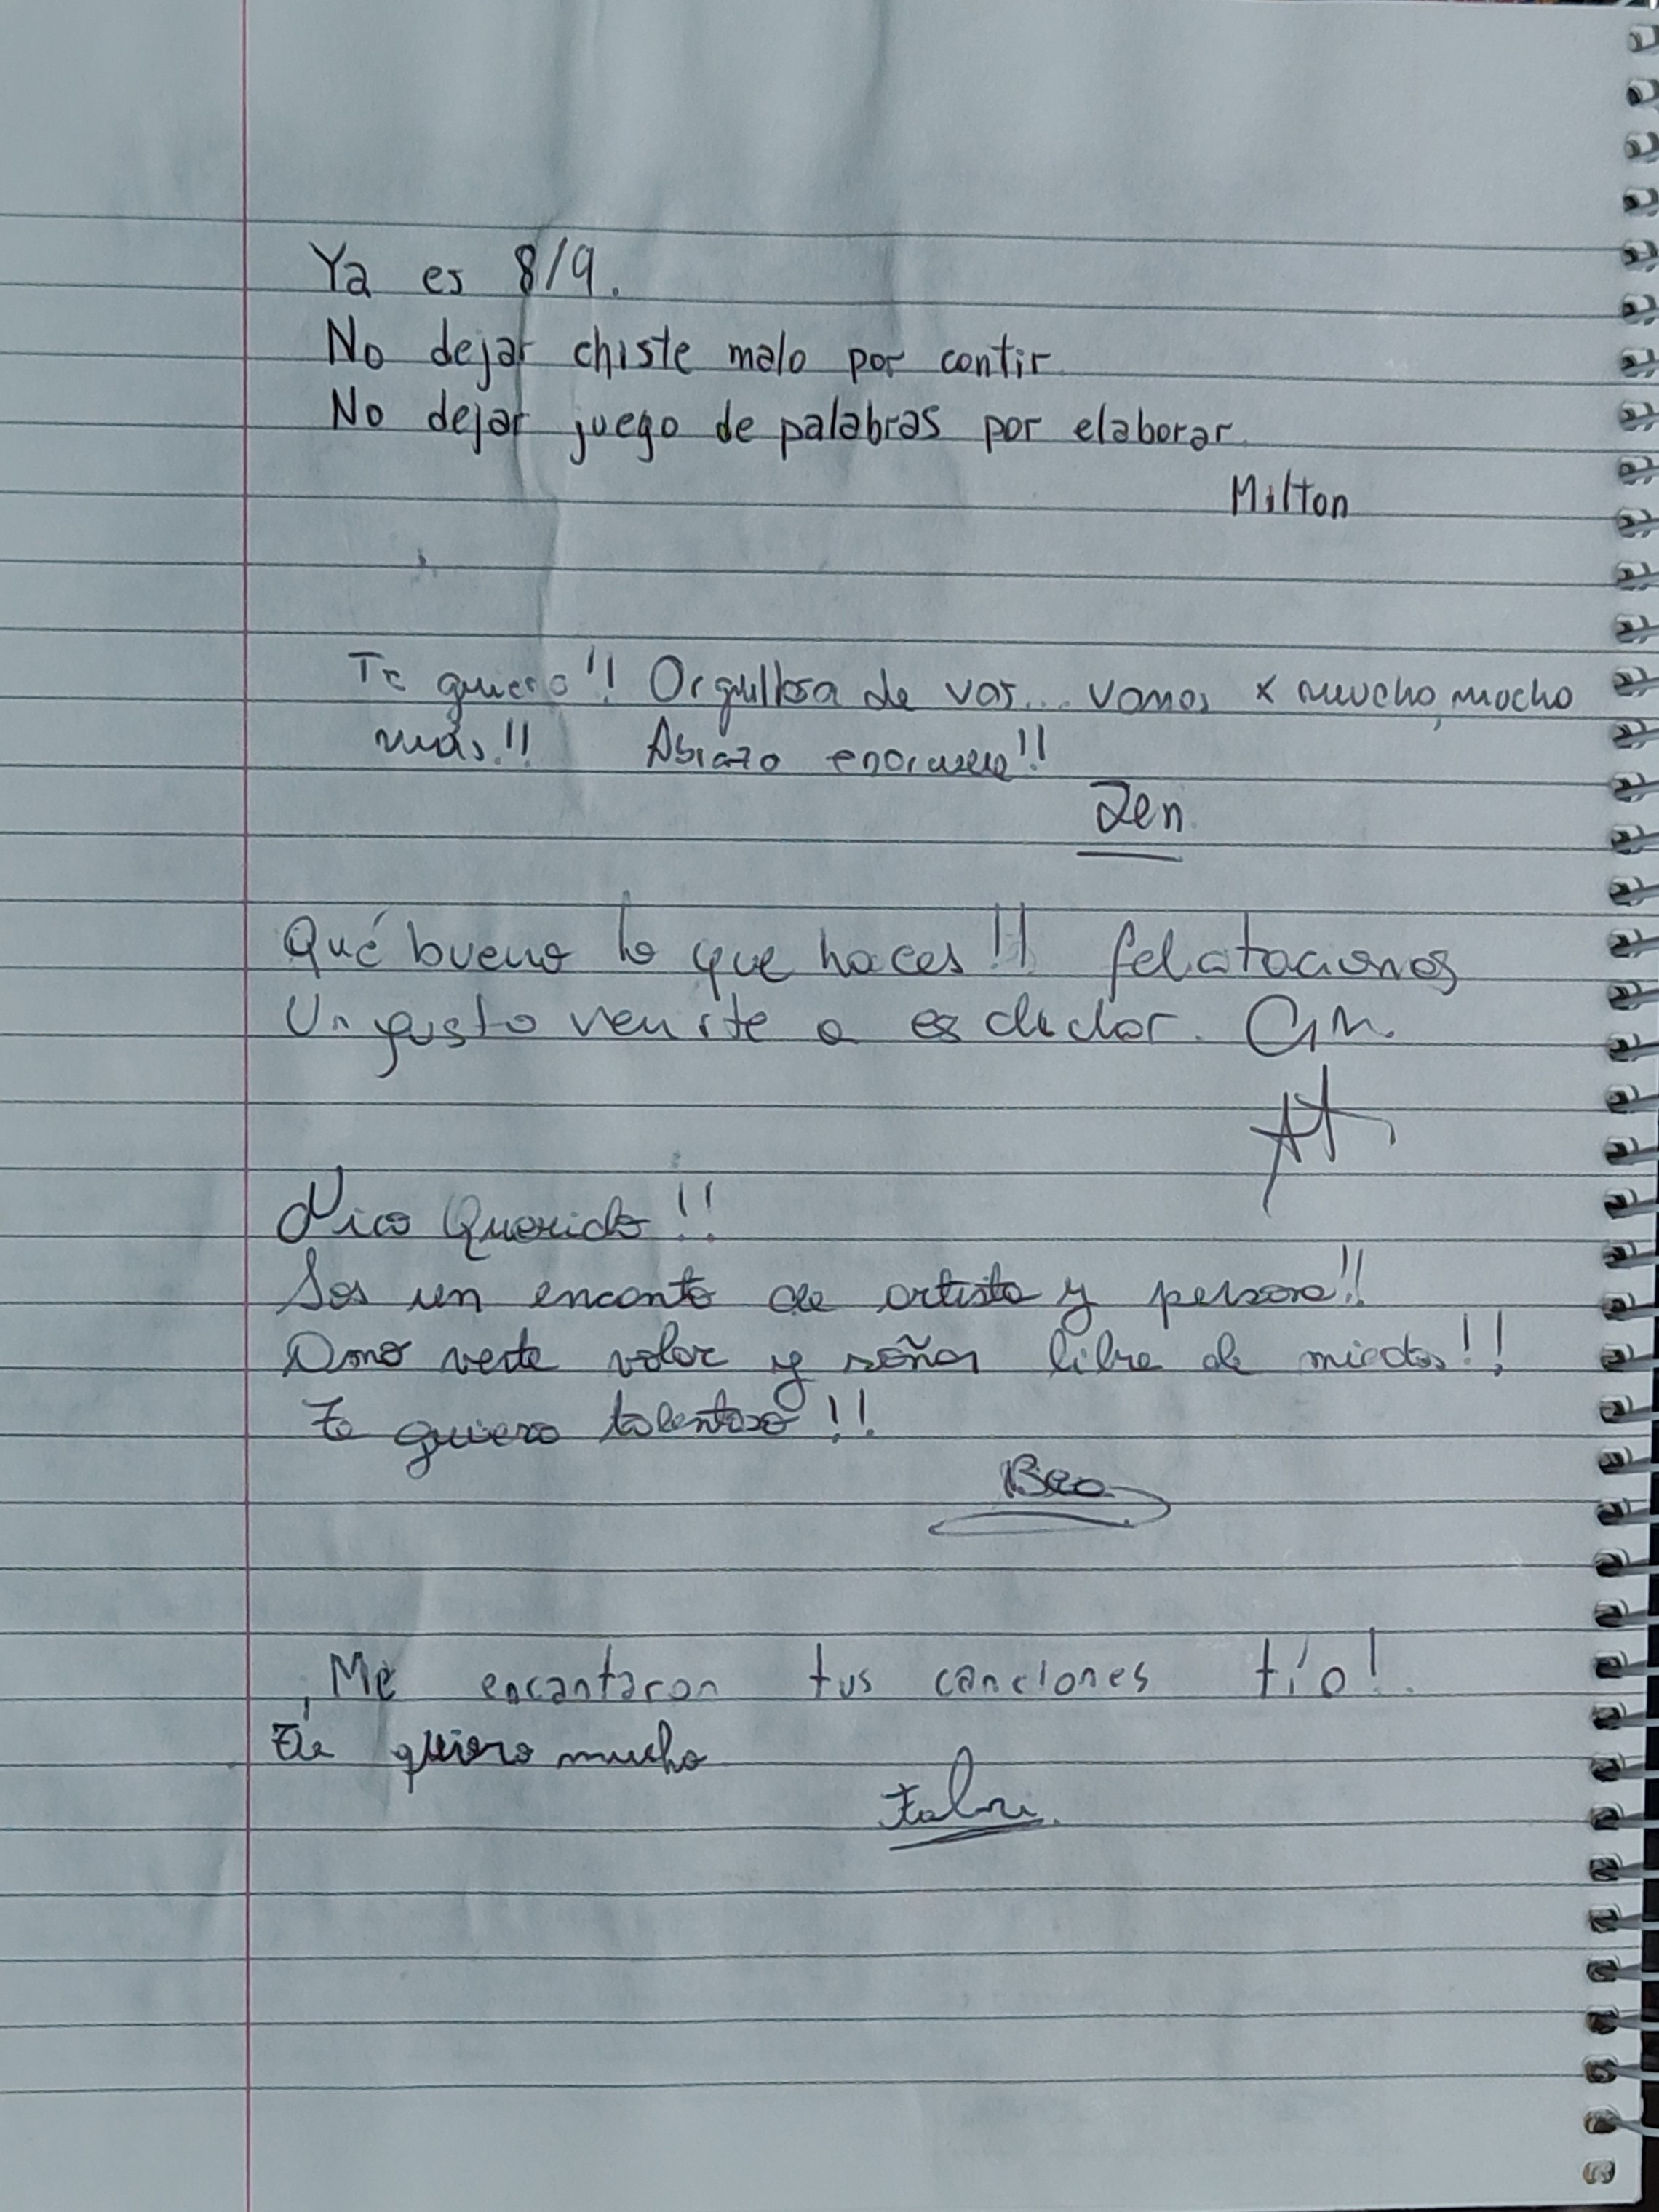 Ya es 8/9.
No dejar chiste malo por contir
No dejar juego de palabras por elaborar.
Milton
Te quiero!! Orgullosa de vos... vamos x mucho, mucho
más!! Abrazo enorme!!
Zen
Qué bueno lo que haces!! felicitaciones
Un gusto venirte a escuchar.
Nico Querido!!
Sos un encanto de artista y persona!!
Amo verte volar y soñar libre de miedos!!
Te quiero talentoso!!
Bea
¡Me encantaron tus canciones tío!
Te quiero mucho